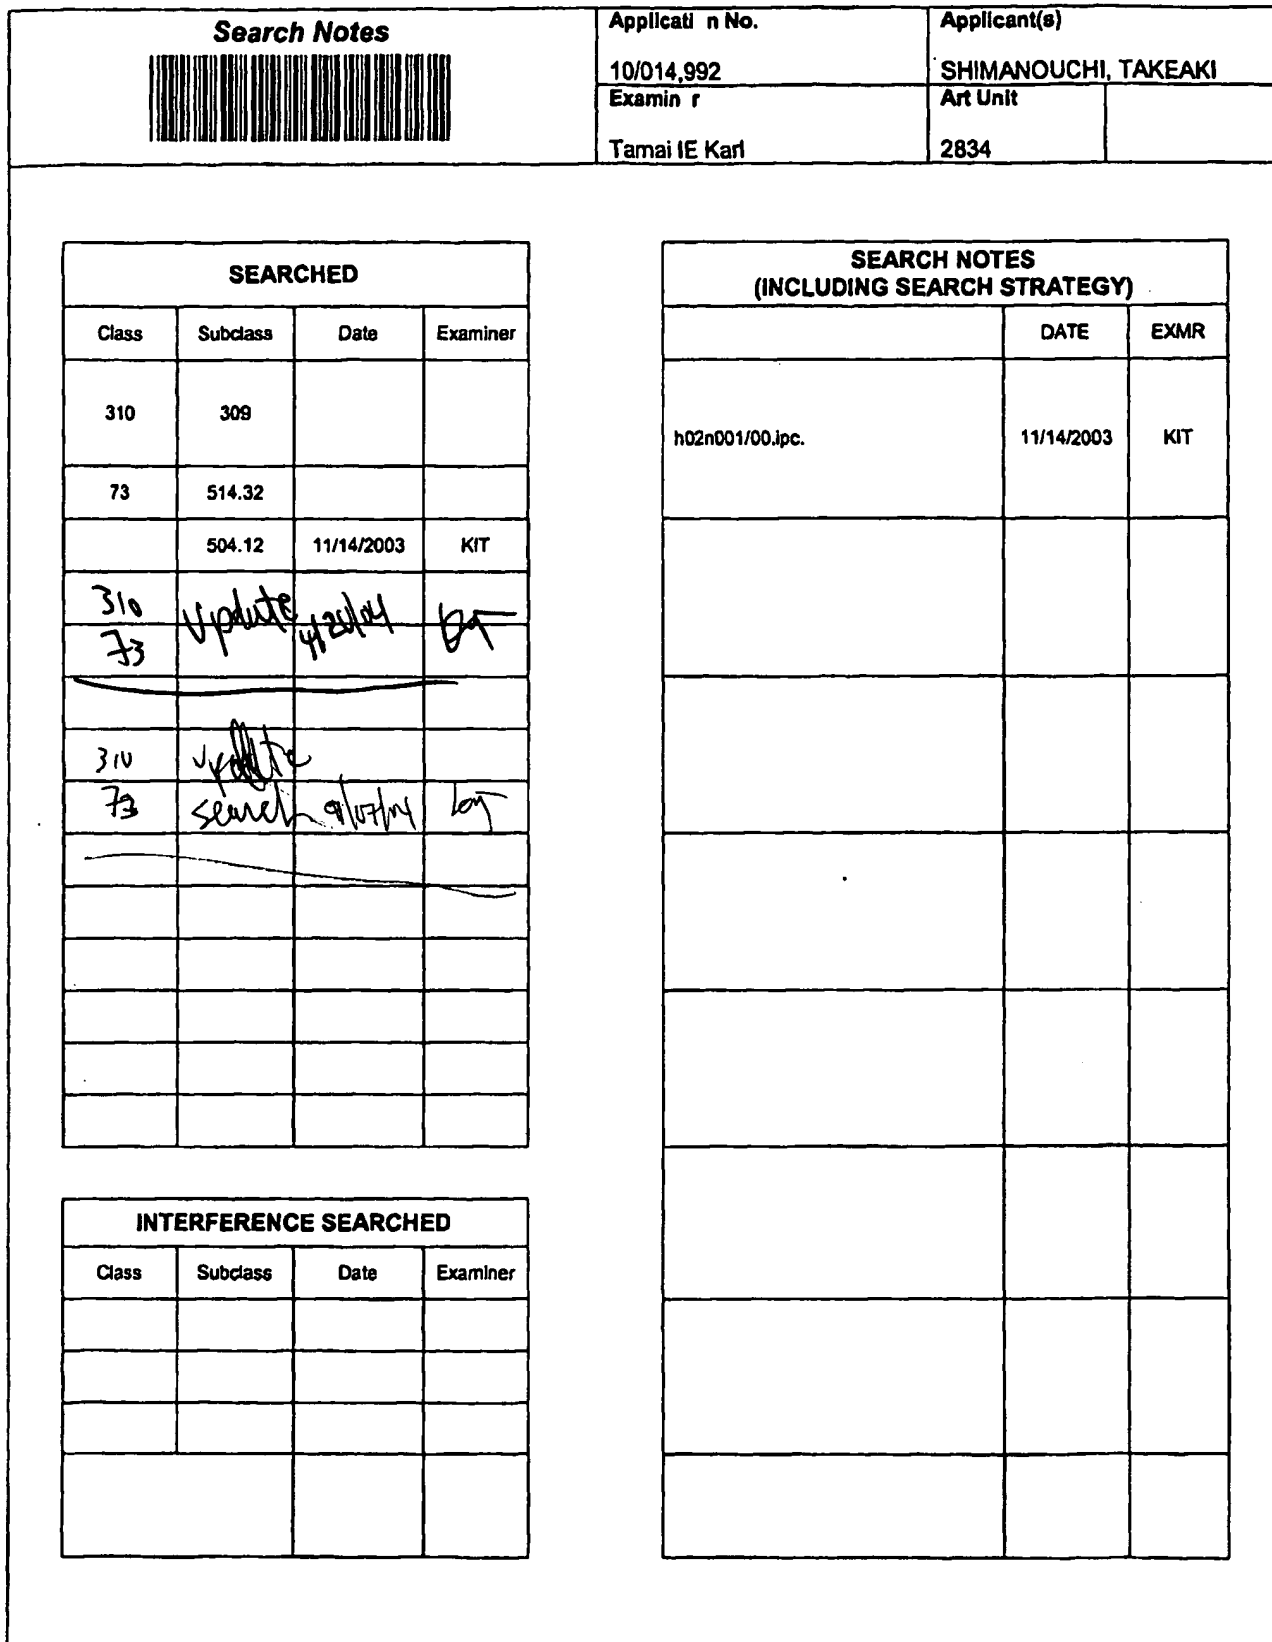 Search Notes
Applicati n No.
Applicant(s)
10/014,992
SHIMANOUCHI, TAKEAKI
Examin r
Art Unit
Tamai IE Karl
2834
SEARCHED
Class Subclass Date Examiner
310 309
73 514.32
504.12 11/14/2003 KIT
310 Update
73
310 update
73 search
INTERFERENCE SEARCHED
Class Subclass Date Examiner
SEARCH NOTES
(INCLUDING SEARCH STRATEGY)
DATE EXMR
h02n001/00.ipc. 11/14/2003 KIT